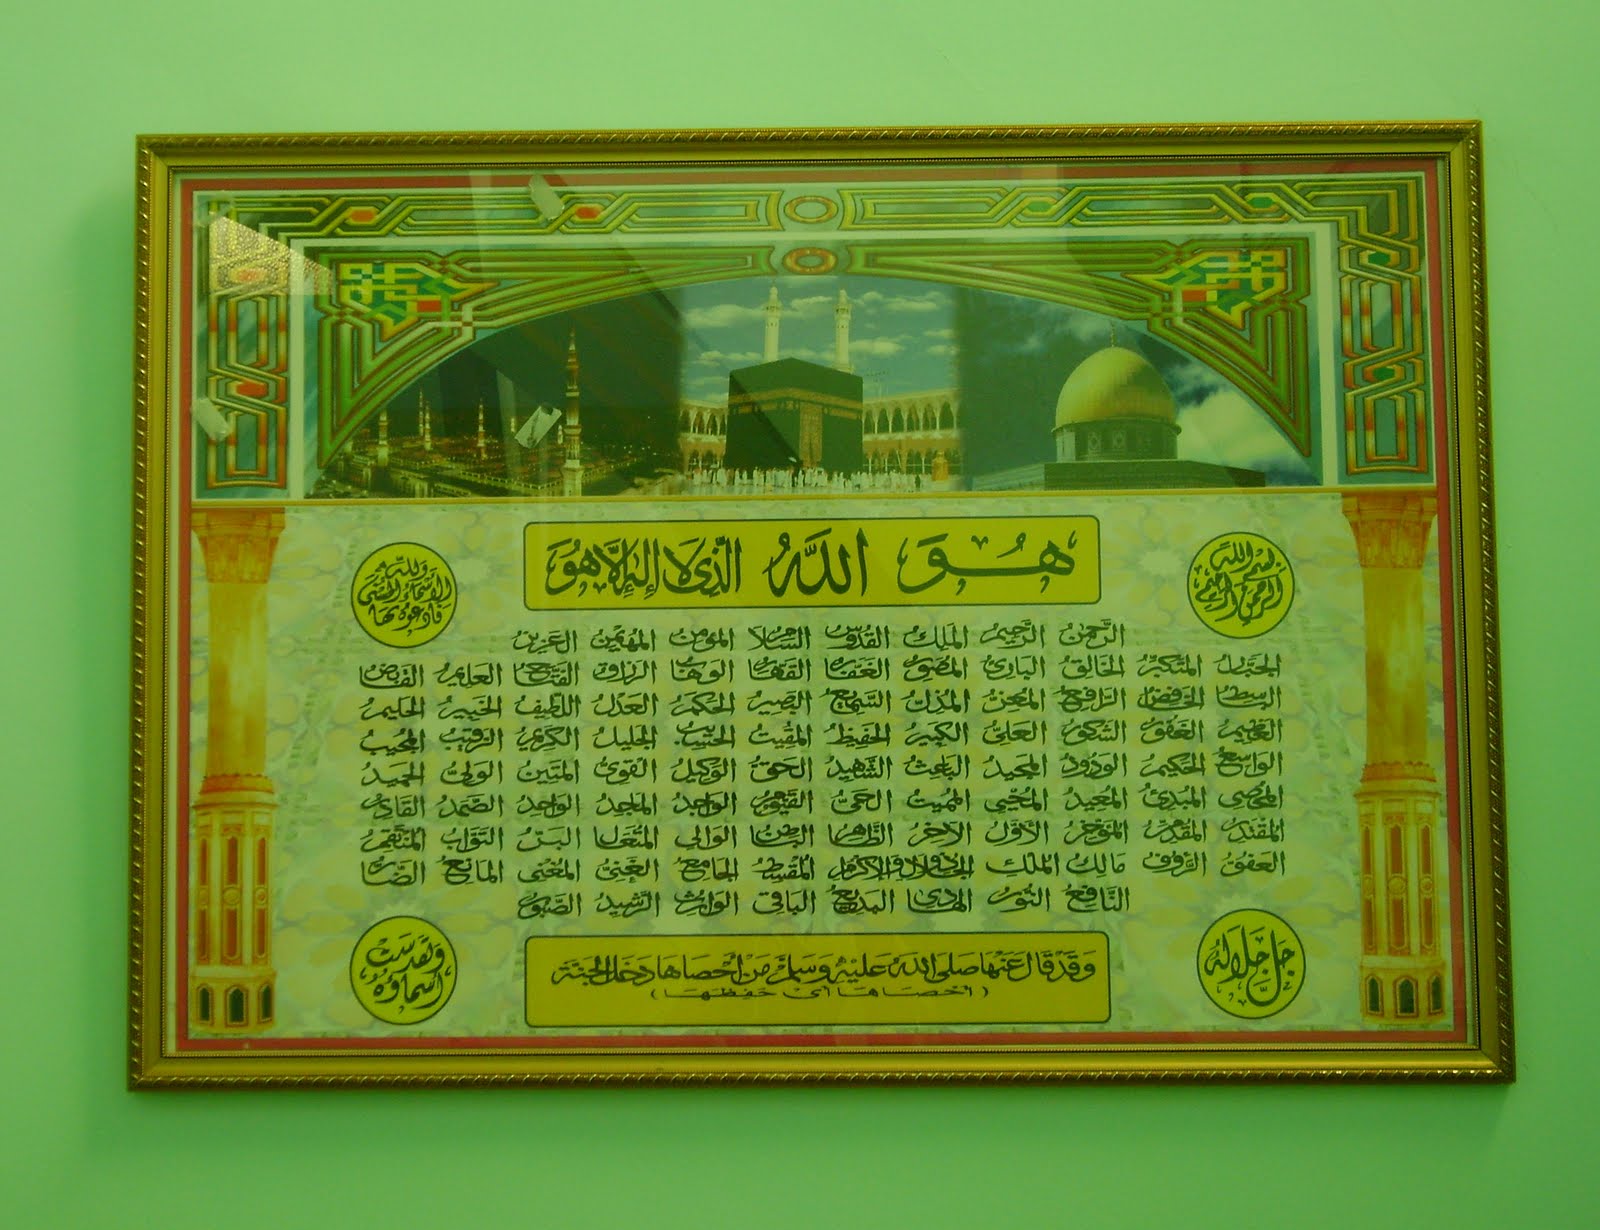 بسم الله الرحمن الرحيم
هُوَ اللَّهُ الَّذِي لَا إِلَٰهَ إِلَّا هُوَ
ولله الأسماء الحسنى فادعوه بها
الرحمن الرحيم الملك القدوس السلام المؤمن المهيمن العزيز
الجبار المتكبر الخالق البارئ المصور الغفار القهار الوهاب الرزاق الفتاح العليم القابض
الباسط الخافض الرافع المعز المذل السميع البصير الحكم العدل اللطيف الخبير الحليم
العظيم الغفور الشكور العلي الكبير الحفيظ المقيت الحسيب الجليل الكريم الرقيب المجيب
الواسع الحكيم الودود المجيد الباعث الشهيد الحق الوكيل القوي المتين الولي الحميد
المحصي المبدئ المعيد المحيي المميت الحي القيوم الواجد الماجد الواحد الصمد القادر
المقتدر المقدم المؤخر الأول الآخر الظاهر الباطن الوالي المتعال البر التواب المنتقم
العفو الرؤوف مالك الملك ذو الجلال والإكرام المقسط الجامع الغني المغني المانع الضار
النافع النور الهادي البديع الباقي الوارث الرشيد الصبور
جل جلاله
وقد قال عنها صلى الله عليه وسلم من أحصاها دخل الجنة
(أحصاها أي حفظها)
وتقدست أسماؤه